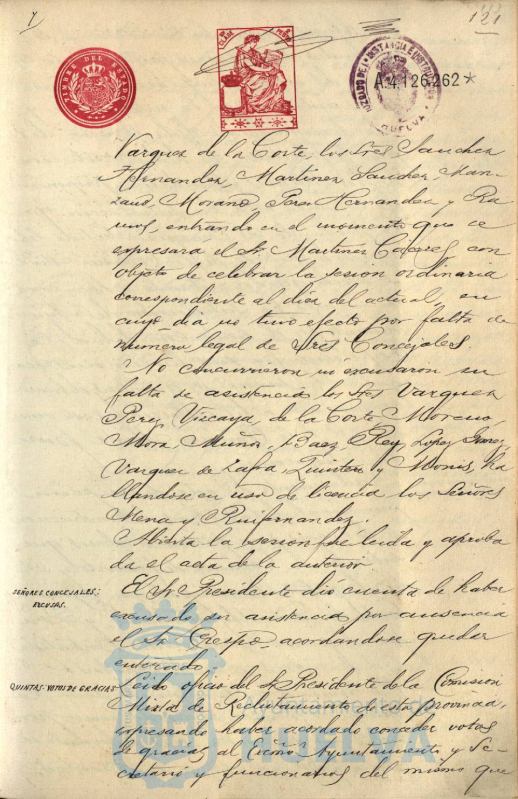 121
TIMBRE DEL ESTADO
A.4.126.262*
HUELVA
Vazquez de la Corte, los Sres Sanchez
Hernandez, Martinez Sanchez, Man-
zano, Morano, Perez Hernandez y Ra
mos, entrando en el momento que se
expresara el Sr Martinez Caceres, con
objeto de celebrar la sesion ordinaria
correspondiente al dia del actual, en
cuyo dia no tuvo efecto por falta de
numero legal de Sres Concejales
No concurrieron ni excusaron su
falta de asistencia los Sres Vazquez
Perez, Vizcaya, de la Corte Moreno,
Mora, Muñoz, Baez, Rey, Lopez
Vazquez de Zafra, Quintero y Monis, ha
llandose en uso de licencia los Señores
Mena y Ruifernandez.
Abierta la sesion fue leida y aproba
da el acta de la anterior.
SEÑORES CONCEJALES:
EXCUSAS.
El Sr Presidente dió cuenta de haber
excusado su asistencia por ausencia
el Sr Crespo, acordandose quedar
enterado.
QUINTAS-VOTOS DE GRACIAS
Leido oficio del Sr Presidente de la Comision
Mixta de Reclutamiento de esta provincia,
expresando haber acordado conceder votos
de gracias al Excmo Ayuntamiento y Se-
cretario y funcionarios del mismo que
HUELVA